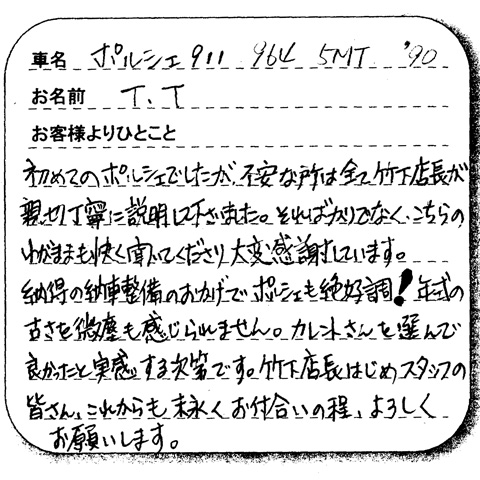 車名 ポルシェ911 964 5MT '90
お名前 T.T
お客様よりひとこと
初めてのポルシェでしたが、不安な所は全て竹下店長が
親切丁寧に説明して下さいました。そればかりでなく、こちらの
わがままも快く聞いてくださり大変感謝しています。
納得の納車整備のおかげでポルシェも絶好調!年式の
古さを微塵も感じられません。カレントさんを選んで
良かったと実感する次第です。竹下店長はじめスタッフの
皆さん、これからも末永くお付合いの程、よろしく
お願いします。